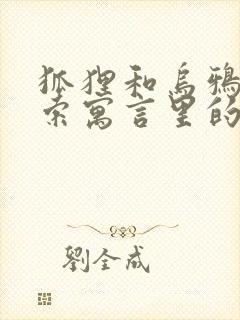 狐狸和乌鸦
索寓言里的
劉全成